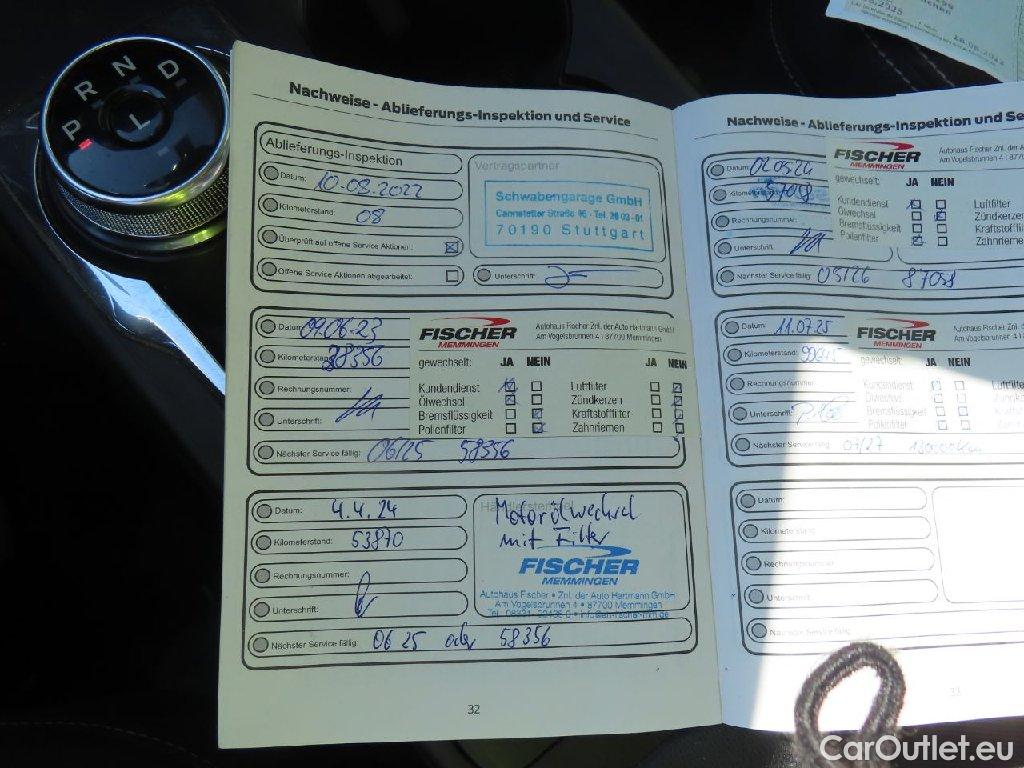 P R N D
L
Nachweise - Ablieferungs-Inspektion und Service
Ablieferungs-Inspektion
Datum: 10.08.2022
Kilometerstand: 08
Überprüft auf offene Service Aktionen:
Offene Service Aktionen abgearbeitet:
Vertragspartner
Schwabengarage GmbH
70190 Stuttgart
Unterschrift:
Datum: 09.06.23
Kilometerstand: 38356
Rechnungsnummer:
Unterschrift:
Nächster Service fällig: 06/25 58356
FISCHER
MEMMINGEN
Autohaus Fischer Znl. der Auto Hartmann GmbH
Am Vogelsbrunnen 4 · 87700 Memmingen
gewechselt: JA NEIN JA NEIN
Kundendienst Luftfilter
Ölwechsel Zündkerzen
Bremsflüssigkeit Kraftstofffilter
Pollenfilter Zahnriemen
Datum: 4.4.24
Kilometerstand: 53870
Rechnungsnummer:
Unterschrift:
Nächster Service fällig: 06 25 oder 58356
Motorölwechsel
mit Filter
FISCHER
MEMMINGEN
Autohaus Fischer • Znl. der Auto Hartmann GmbH
Am Vogelsbrunnen 4 • 87700 Memmingen
32
Nachweise - Ablieferungs-Inspektion und Se
Datum:
Rechnungsnummer:
Unterschrift:
Nächster Service fällig: 05/26 87058
FISCHER
MEMMINGEN
Autohaus Fischer Znl. der A
Am Vogelsbrunnen 4 · 877
gewechselt: JA NEIN
Kundendienst Luftfilter
Ölwechsel Zündkerzen
Bremsflüssigkeit Kraftstofffi
Pollenfilter Zahnrieme
Datum: 11.07.25
Kilometerstand:
Rechnungsnummer:
Unterschrift:
Nächster Service fällig: 07/27
FISCHER
MEMMINGEN
gewechselt: JA NEIN
Kundendienst
Ölwechsel
Bremsflüssigkeit
Pollenfilter
Datum:
Kilometerstand:
Rechnungsnummer:
Unterschrift:
Nächster Service fällig:
33
CarOutlet.eu